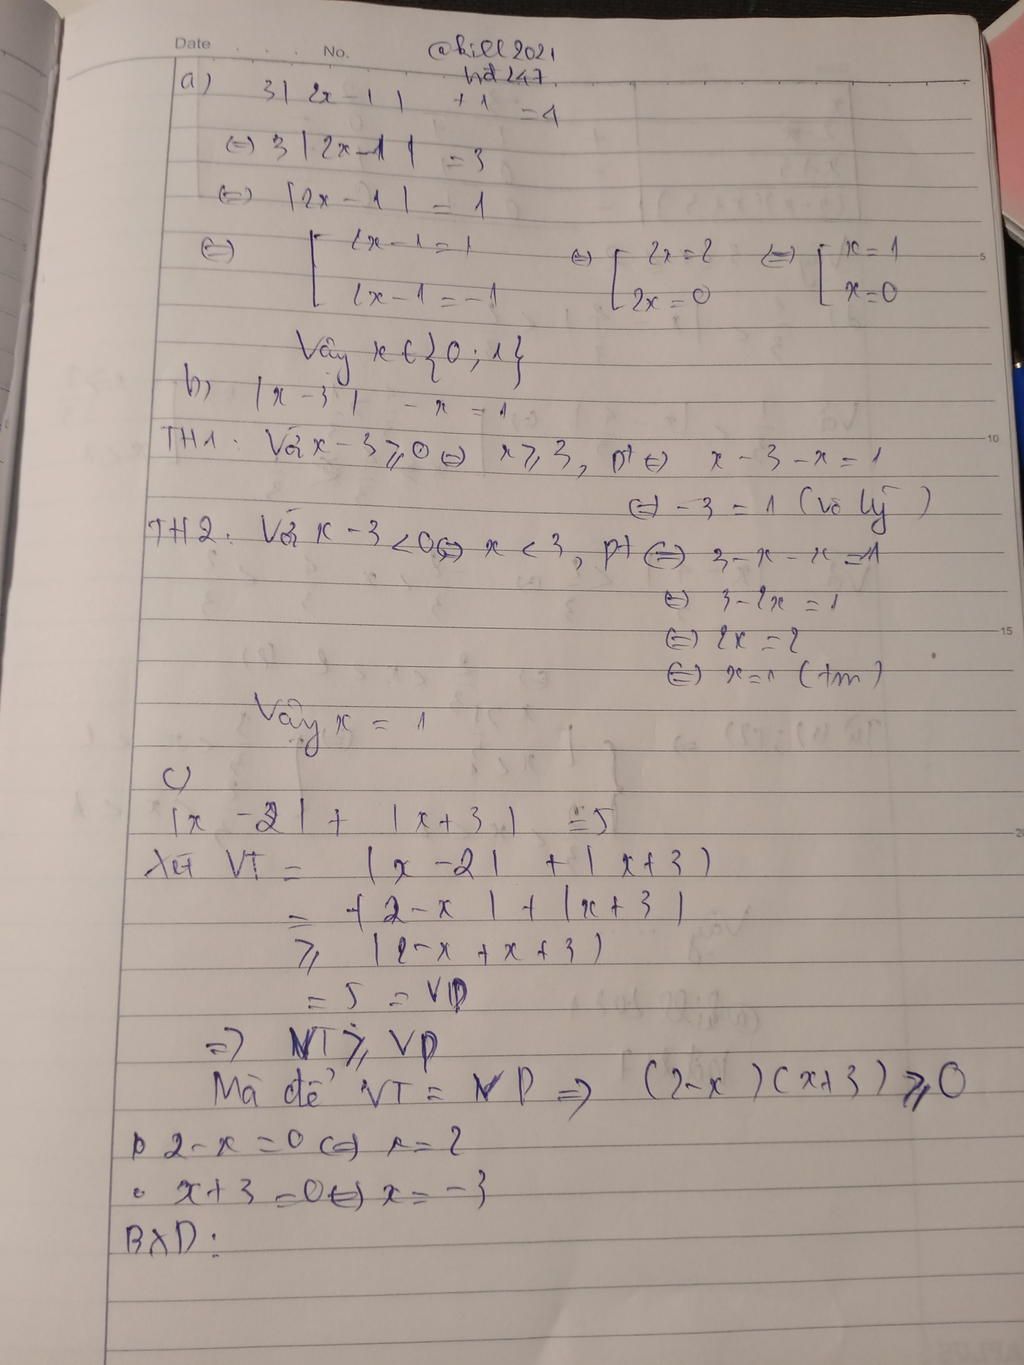 Date . . . . No. @hill2021
hd247
a) 3|2x-1| +1 =4
(=) 3|2x-1| =3
(=) |2x-1| = 1
(=) [ 2x-1=1 (=) [ 2x=2 (=) [ x=1
2x-1=-1 2x=0 x=0
Vậy x∈{0;1}
b) |x-3| -x = 1
TH1: Với x-3⩾0(=) x⩾3, pt(=) x-3-x=1
(=) -3 = 1 (vô lý)
TH2: Với x-3<0(=) x<3, pt (=) 3-x-x=1
(=) 3-2x=1
(=) 2x=2
(=) x=1 (tm)
Vậy x = 1
c)
|x-2|+ |x+3| =5
Xét VT = |x-2| +|x+3|
= |2-x|+|x+3|
⩾ |2-x+x+3|
= 5 = VP
=> VT⩾VP
Mà để VT = VP => (2-x)(x+3)⩾0
• 2-x=0(=) x=2
• x+3=0(=) x=-3
BXD:
5
10
15
20